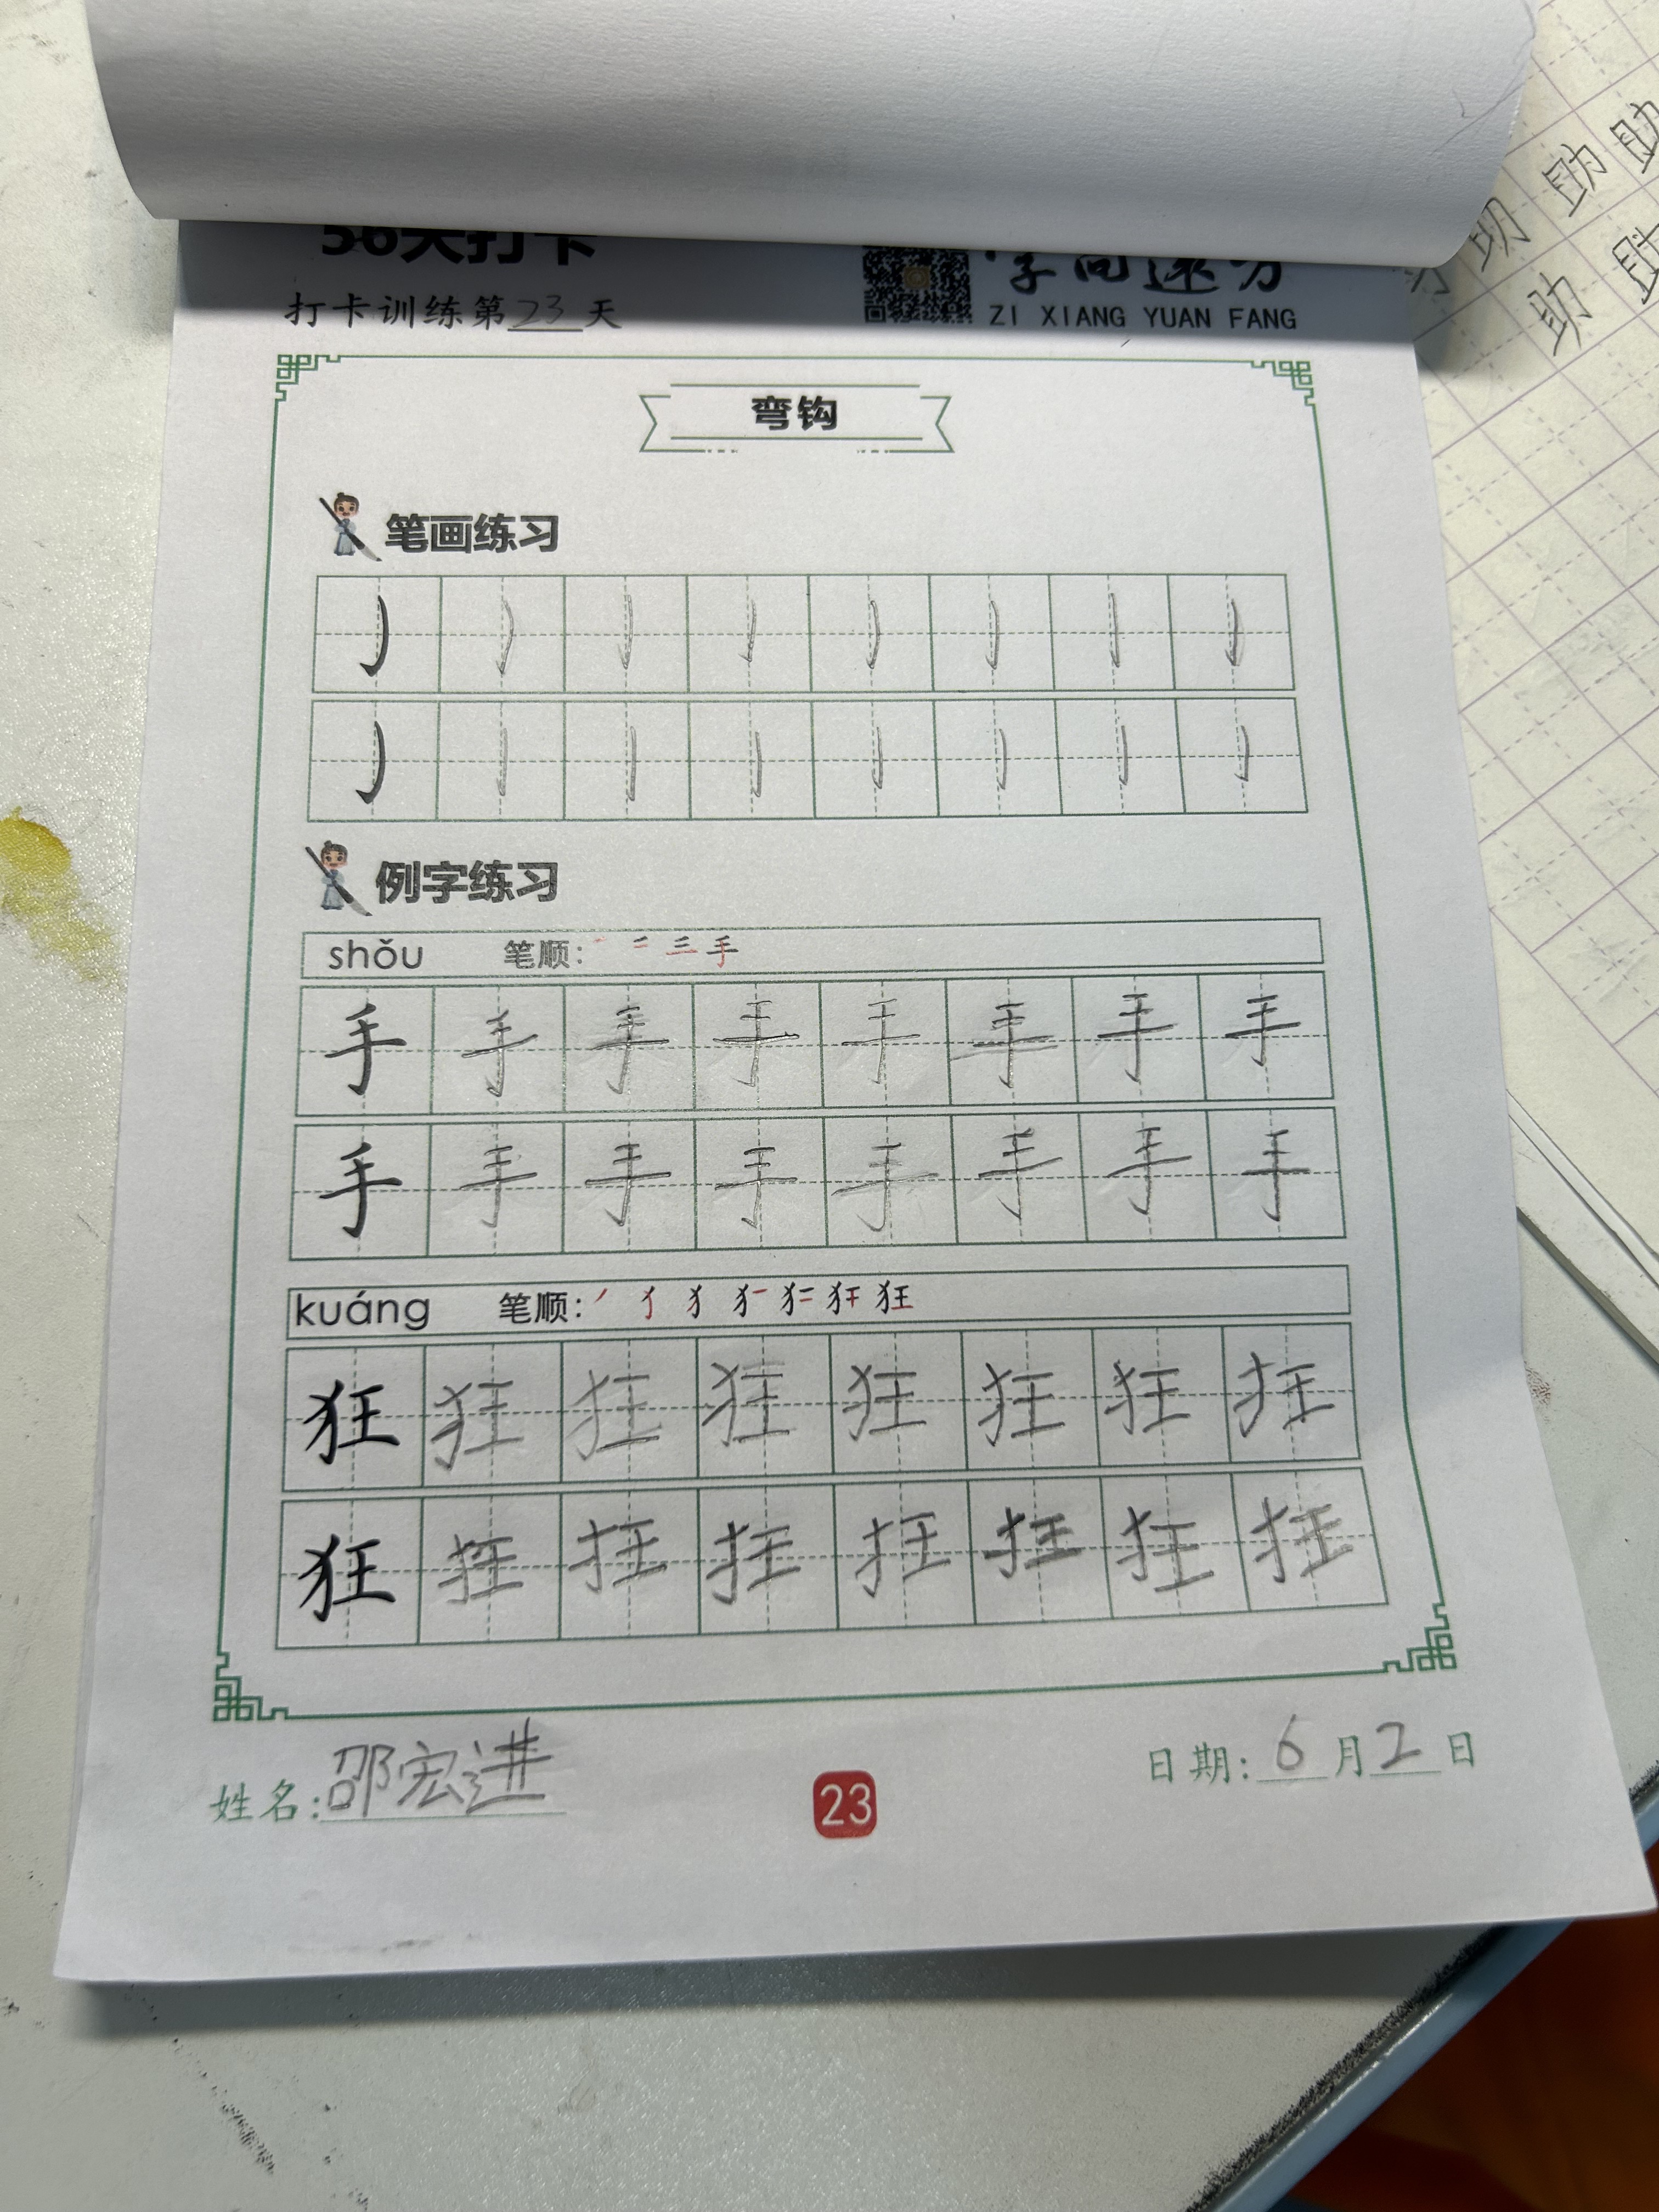 56天打卡
打卡训练第23天
字向远方
ZI XIANG YUAN FANG
弯钩
笔画练习
例字练习
shǒu 笔顺: 手
手 手 手 手 手 手 手 手
手 手 手 手 手 手 手 手
kuáng 笔顺: 狂
狂 狂 狂 狂 狂 狂 狂 狂
狂 狂 狂 狂 狂 狂 狂 狂
姓名:邵宏进
23
日期:6月2日
助 助
助 助
助 助